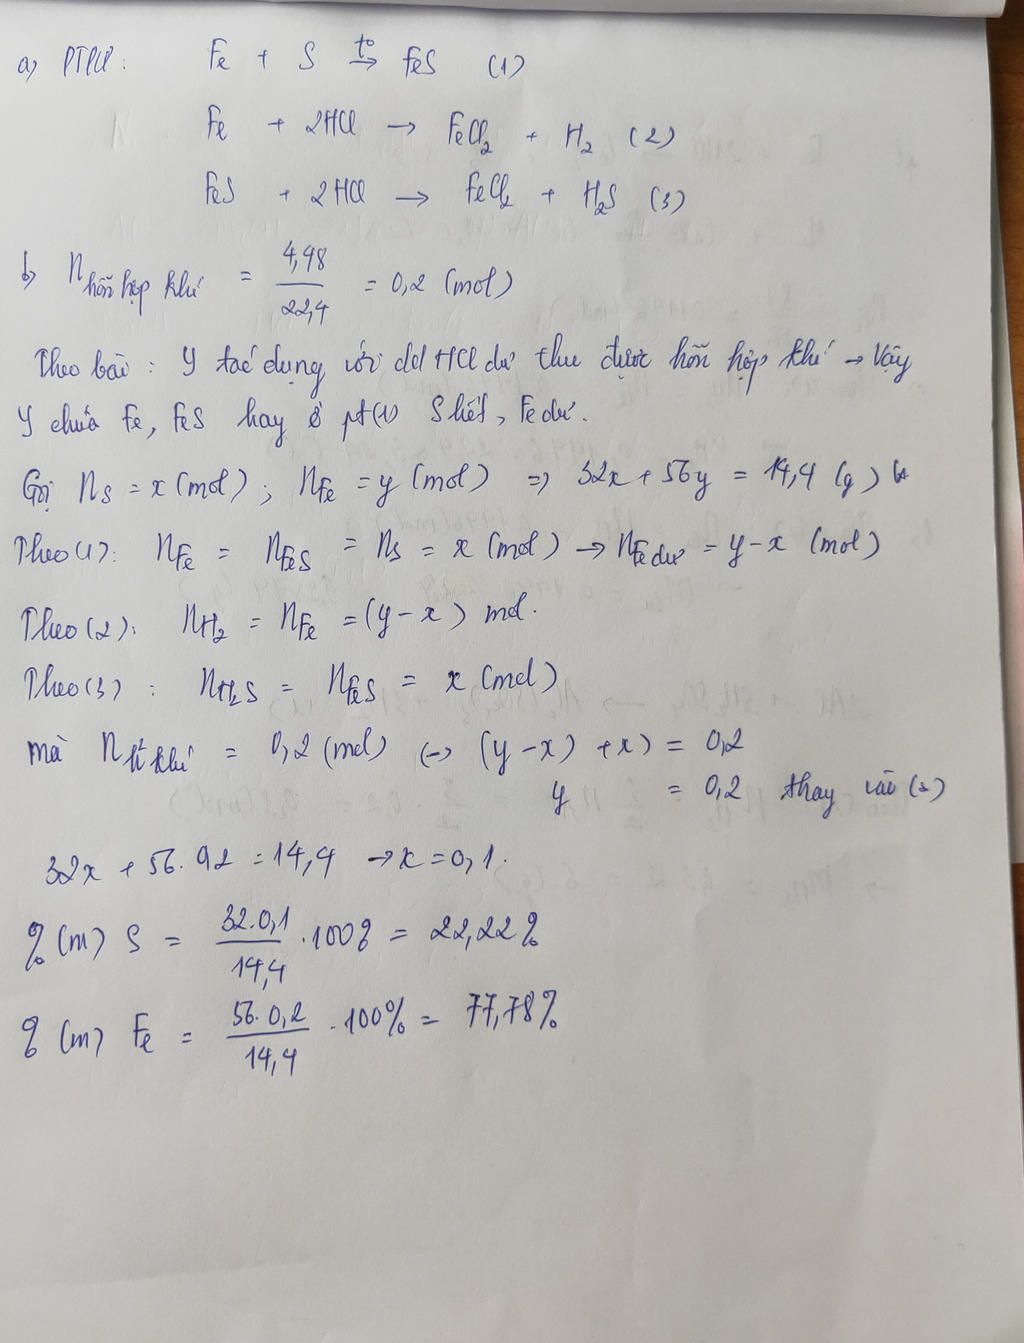 a) PTPƯ: Fe + S t°→ FeS (1)
Fe + 2HCl → FeCl₂ + H₂ (2)
FeS + 2HCl → FeCl₂ + H₂S (3)
b) n hỗn hợp khí = 4,48/22,4 = 0,2 (mol)
Theo bài: Y tác dụng với dd HCl dư thu được hỗn hợp khí → Vậy
Y chứa Fe, FeS hay ở pt(1) S hết, Fe dư.
Gọi nS = x (mol); nFe = y (mol) => 32x + 56y = 14,4 (g)
Theo (1): nFe = nFeS = nS = x (mol) → nFe dư = y - x (mol)
Theo (2): nH₂ = nFe = (y - x) mol.
Theo (3): nH₂S = nFeS = x (mol)
mà n khí = 0,2 (mol) (-> (y - x) + x) = 0,2
y = 0,2 thay vào
32x + 56. 0,2 = 14,4 → x = 0,1.
% (m) S = 32.0,1/14,4 .100% = 22,22%
% (m) Fe = 56.0,2/14,4 .100% = 77,78%